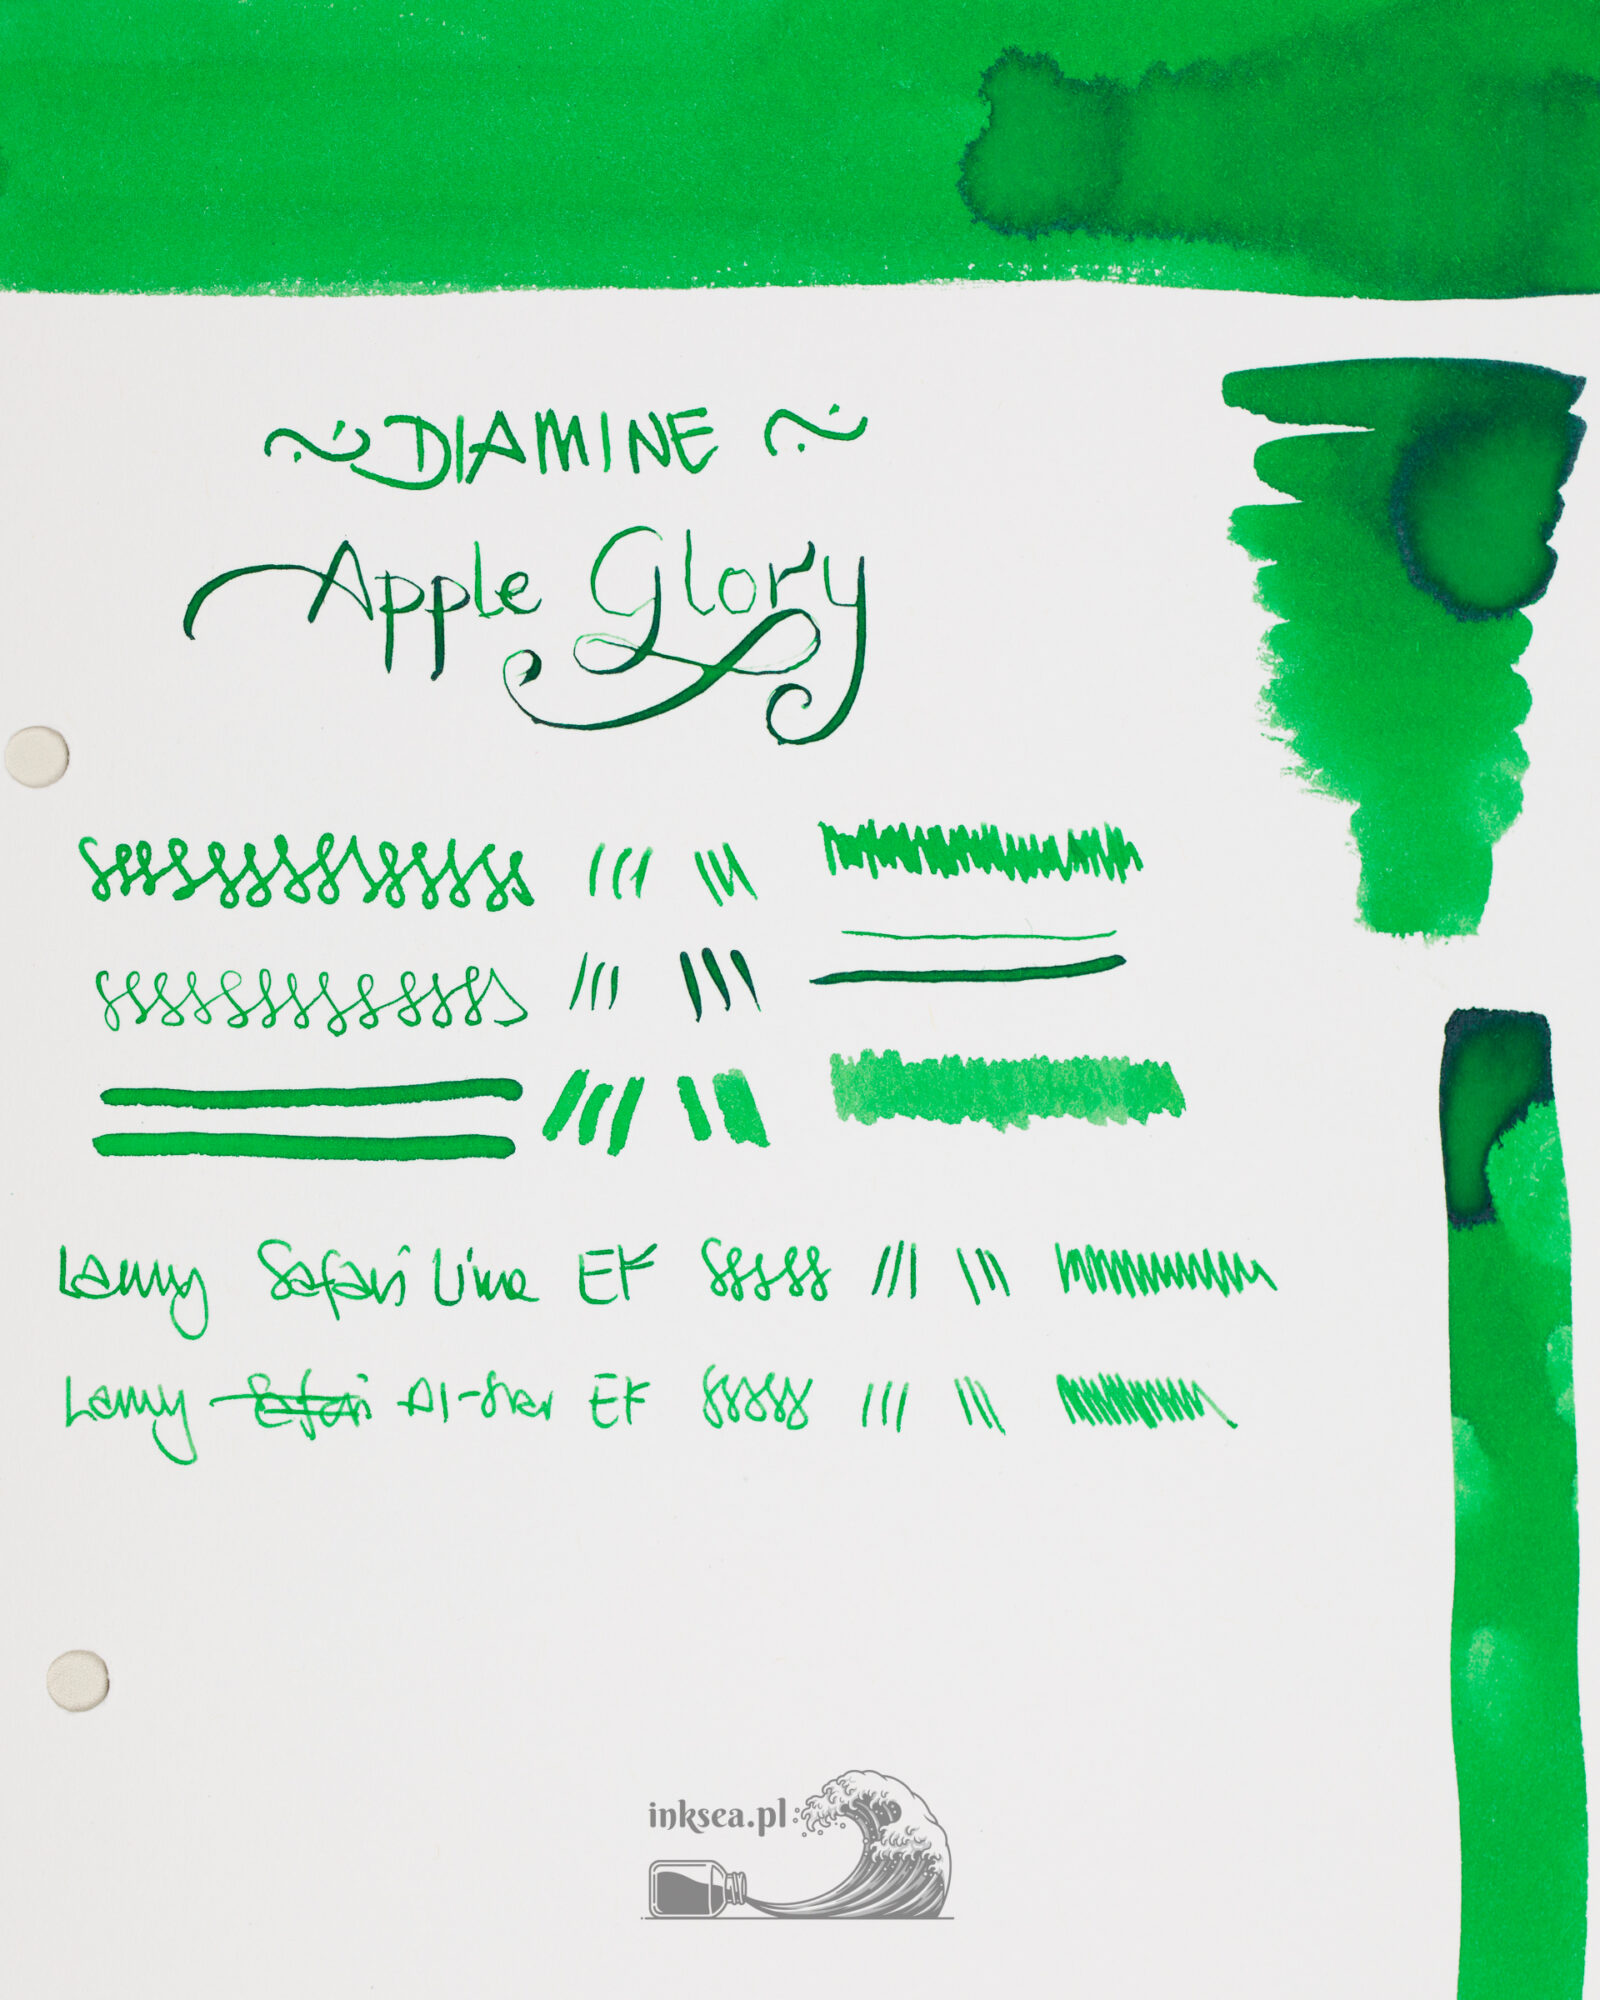 DIAMINE
Apple Glory
Lamy Safari Uma EF
Lamy Safari Al-Star EF
inksea.pl